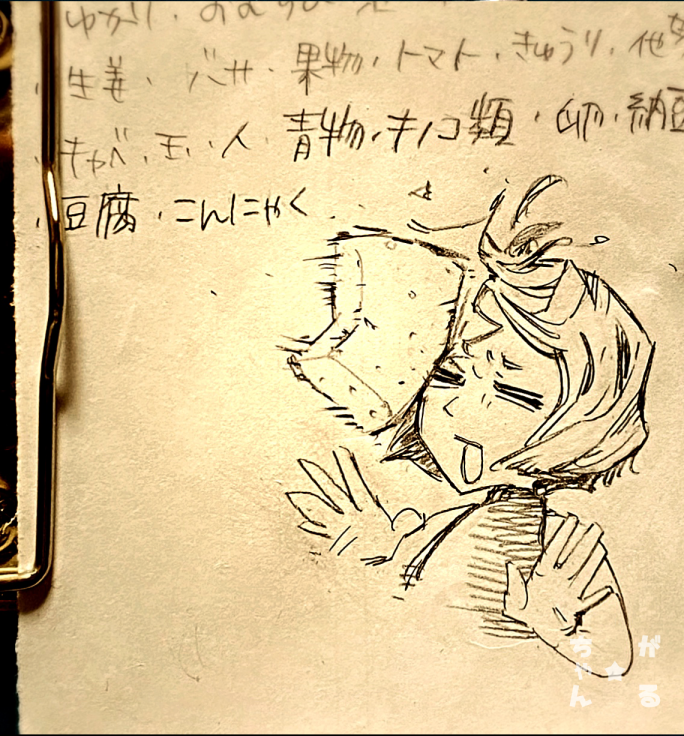 ゆかり、おむすび
・生姜、バサ、果物、トマト、きゅうり、他
・キャベ、玉、人、青物、キノコ類、卵、納豆
・豆腐、こんにゃく
がる☆ちゃん